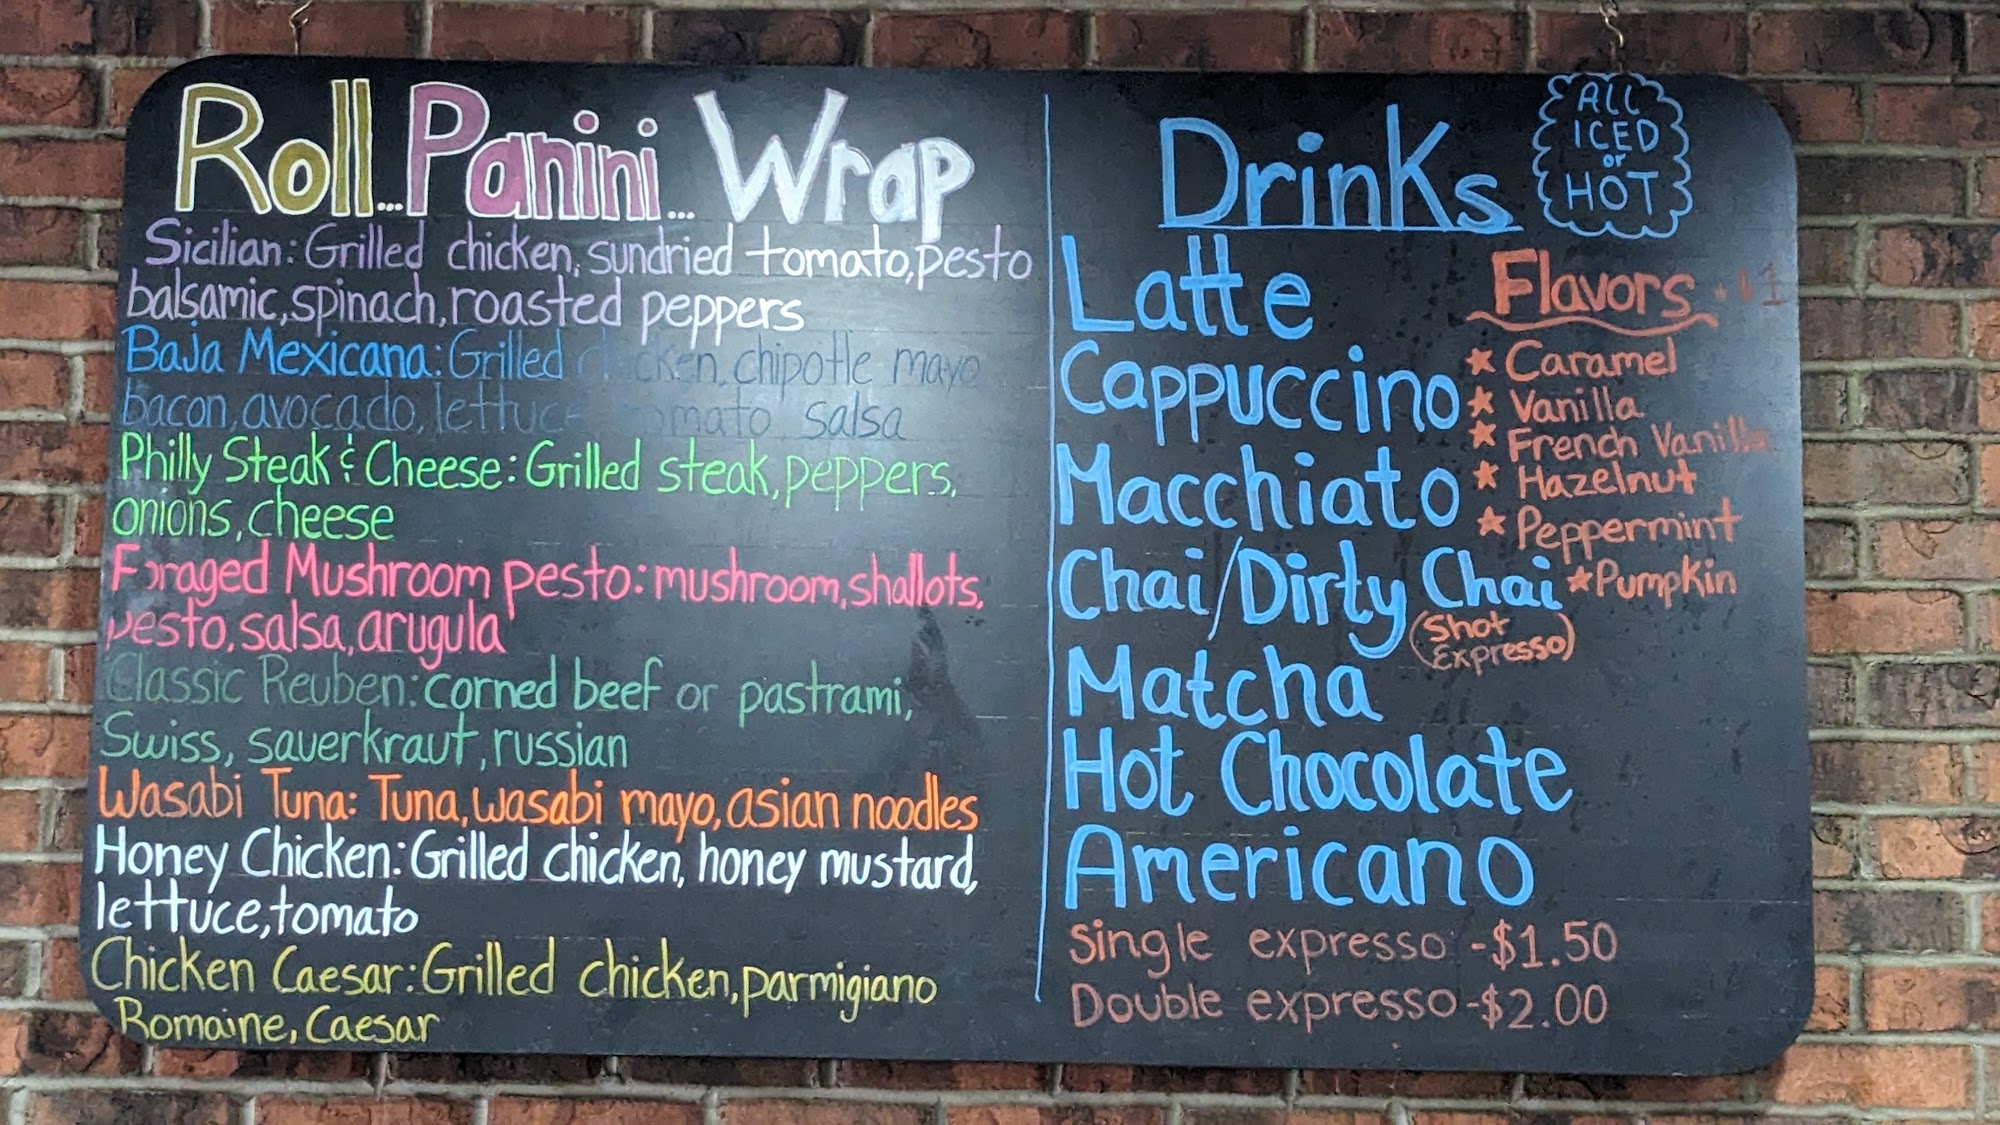 Roll...Panini...Wrap
Sicilian: Grilled chicken, sundried tomato, pesto
balsamic, spinach, roasted peppers
Baja Mexicana: Grilled chicken, chipotle mayo
bacon, avocado, lettuce tomato salsa
Philly Steak & Cheese: Grilled steak, peppers,
onions, cheese
Foraged Mushroom pesto: mushroom, shallots,
pesto, salsa, arugula
Classic Reuben: corned beef or pastrami,
Swiss, sauerkraut, russian
Wasabi Tuna: Tuna, wasabi mayo, asian noodles
Honey Chicken: Grilled chicken, honey mustard,
lettuce, tomato
Chicken Caesar: Grilled chicken, parmigiano
Romaine, Caesar
Drinks
ALL
ICED
or
HOT
Latte
Cappuccino
Macchiato
Chai/Dirty Chai
(Shot
Expresso)
Matcha
Hot Chocolate
Americano
Single expresso -$1.50
Double expresso -$2.00
Flavors
★ Caramel
★ Vanilla
★ French Vanilla
★ Hazelnut
★ Peppermint
★ Pumpkin